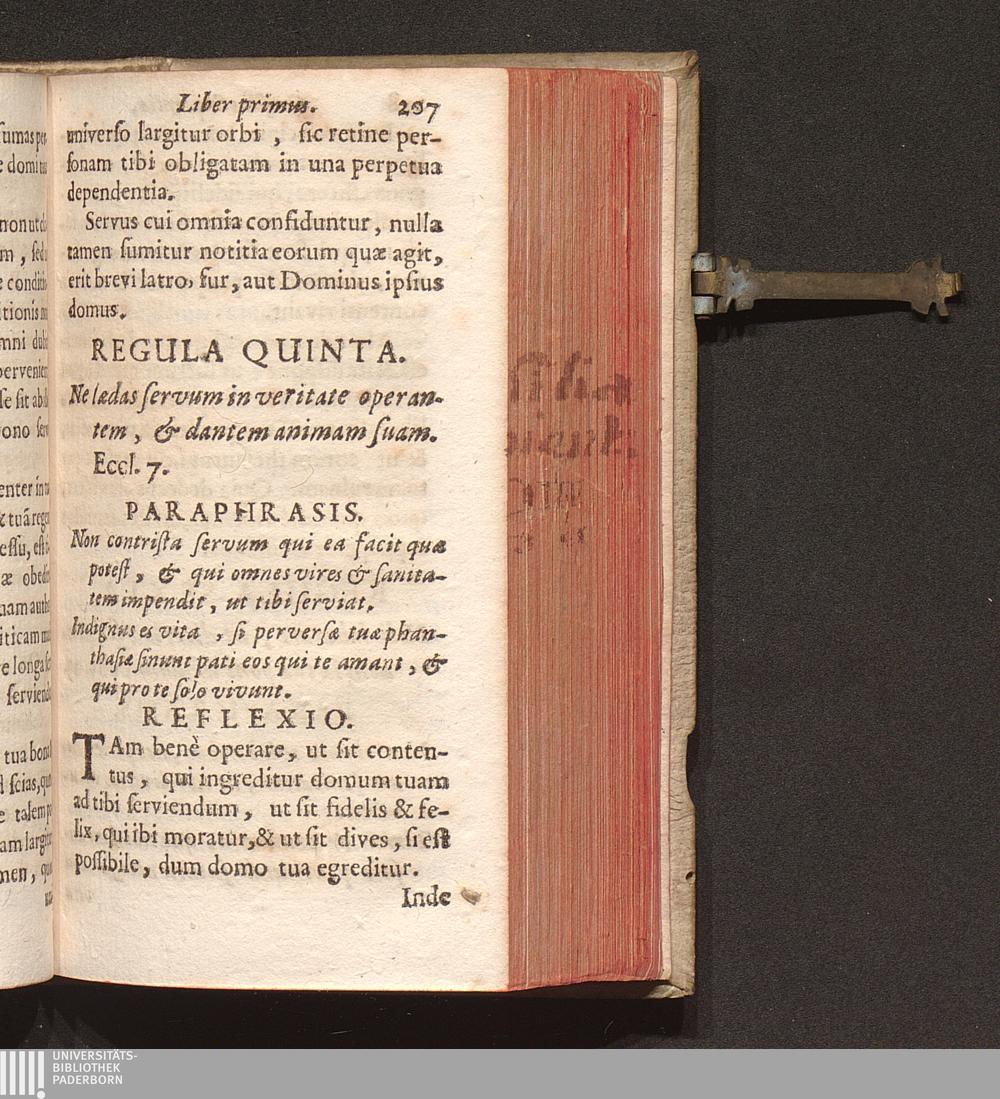 Liber primus. 207
universo largitur orbi , sic retine per-
sonam tibi obligatam in una perpetua
dependentia.
Servus cui omnia confiduntur, nulla
tamen sumitur notitia eorum quæ agit,
erit brevi latro, fur, aut Dominus ipsius
domus.
REGULA QUINTA.
Ne lædas servum in veritate operan-
tem, & dantem animam suam.
Eccl. 7.
PARAPHRASIS.
Non contrista servum qui ea facit quæ
potest, & qui omnes vires & sanita-
tem impendit, ut tibi serviat.
Indignus es vita , si perversæ tuæ phan-
thasiæ sinunt pati eos qui te amant, &
qui pro te solo vivunt.
REFLEXIO.
TAm benè operare, ut sit conten-
tus, qui ingreditur domum tuam
ad tibi serviendum, ut sit fidelis & fe-
lix, qui ibi moratur, & ut sit dives, si est
possibile, dum domo tua egreditur.
Inde
UNIVERSITÄTS-
BIBLIOTHEK
PADERBORN